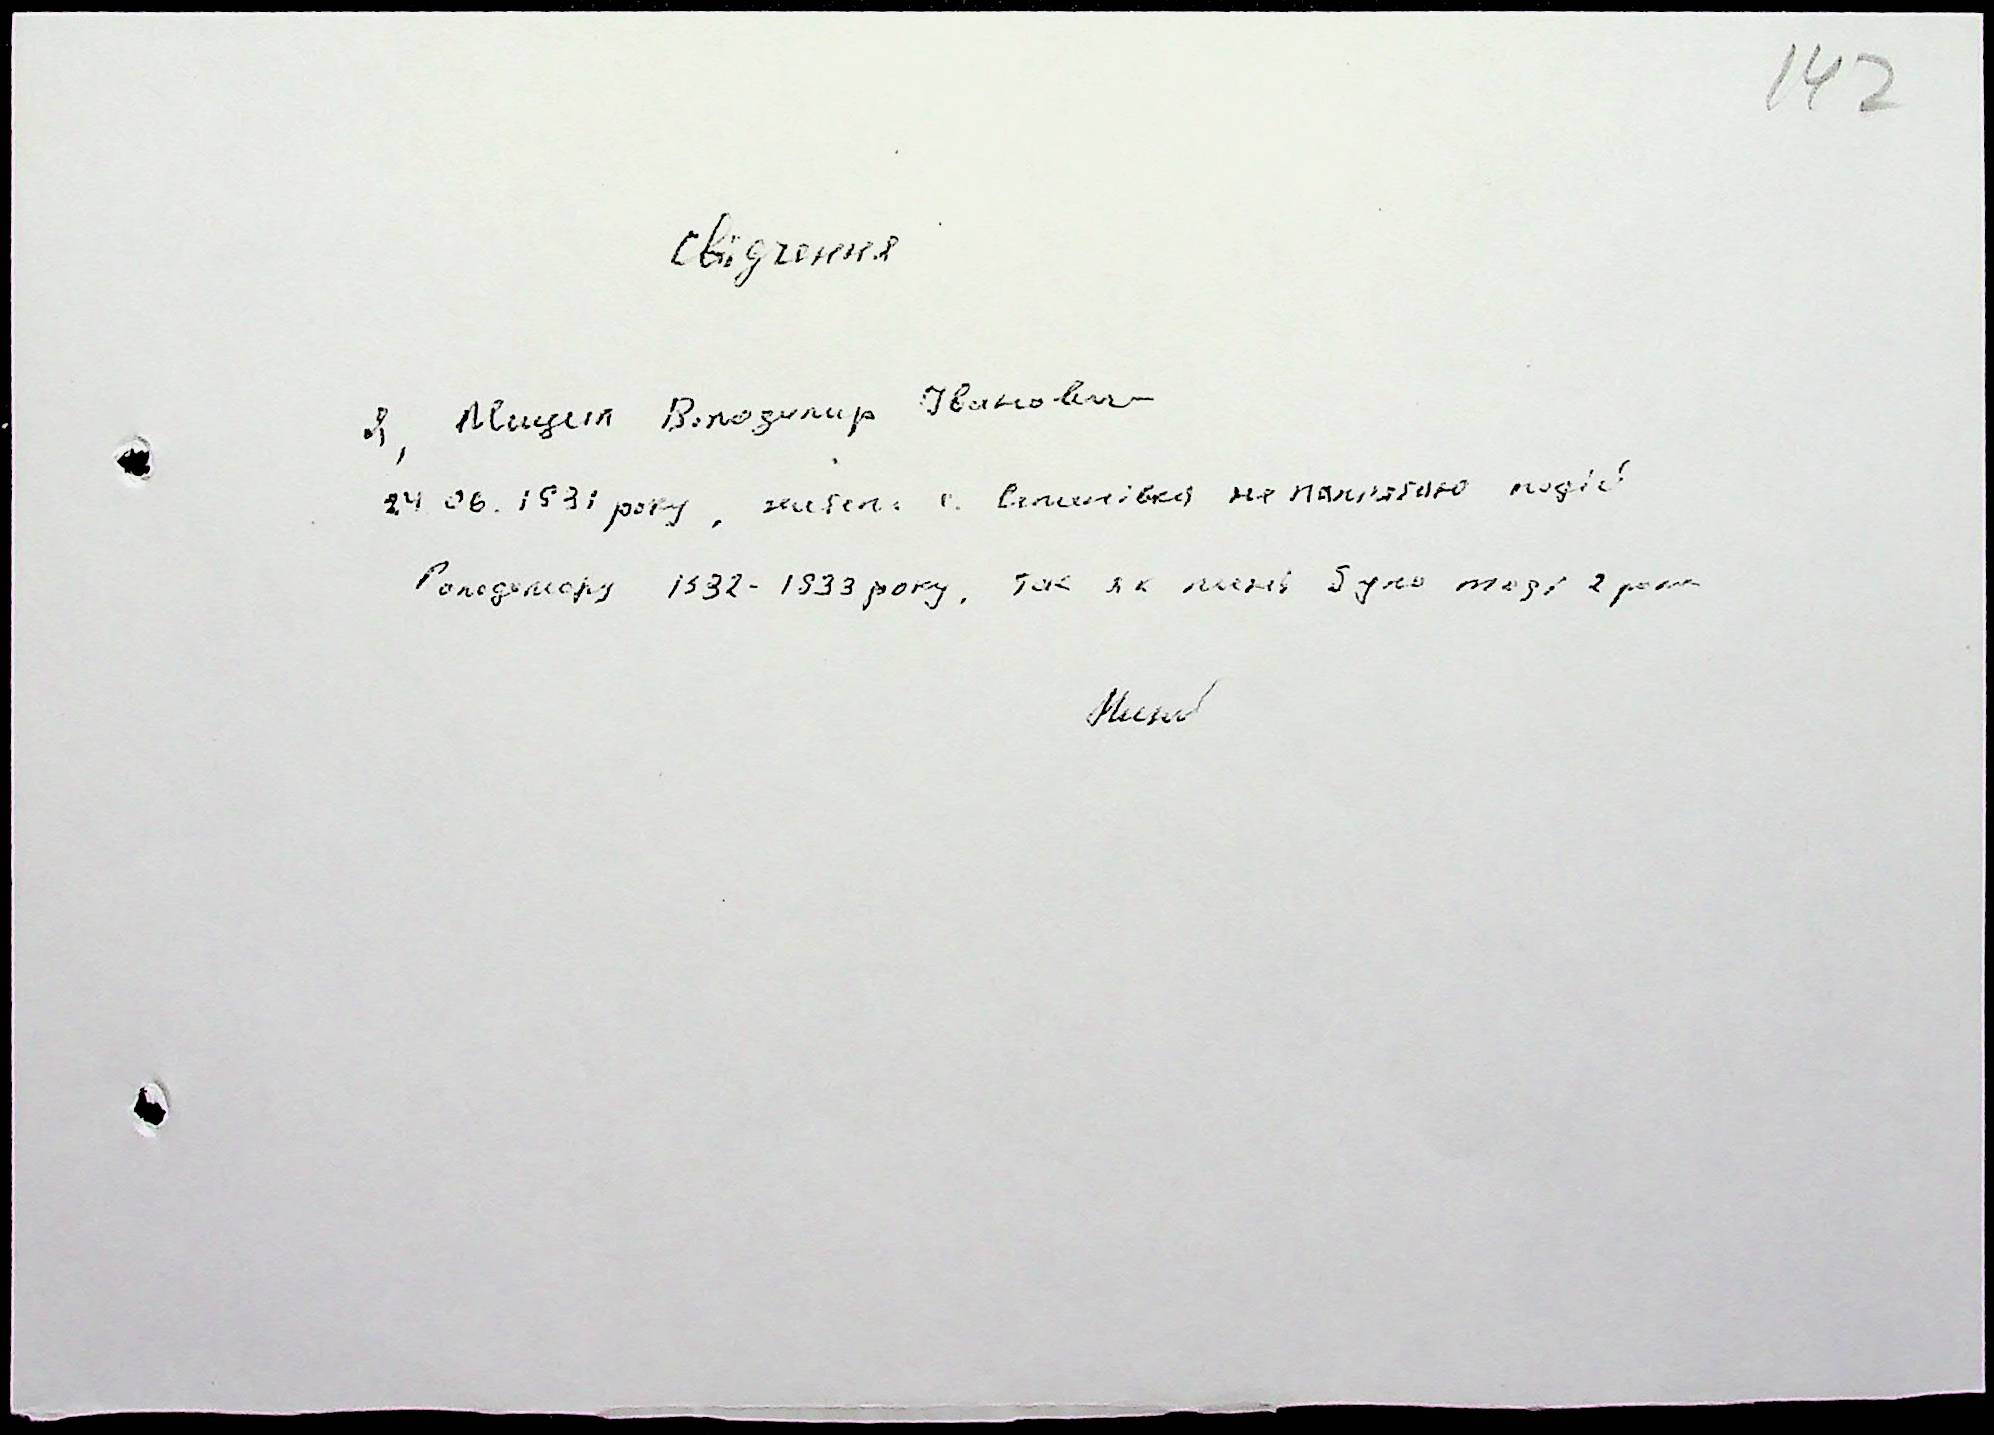 142
Свідчення
Я, Володимир Іванович
24 06. 1931 року, житель с. не памятаю подій
Голодомору 1932-1933 року, так як мині було тоді 2 роки